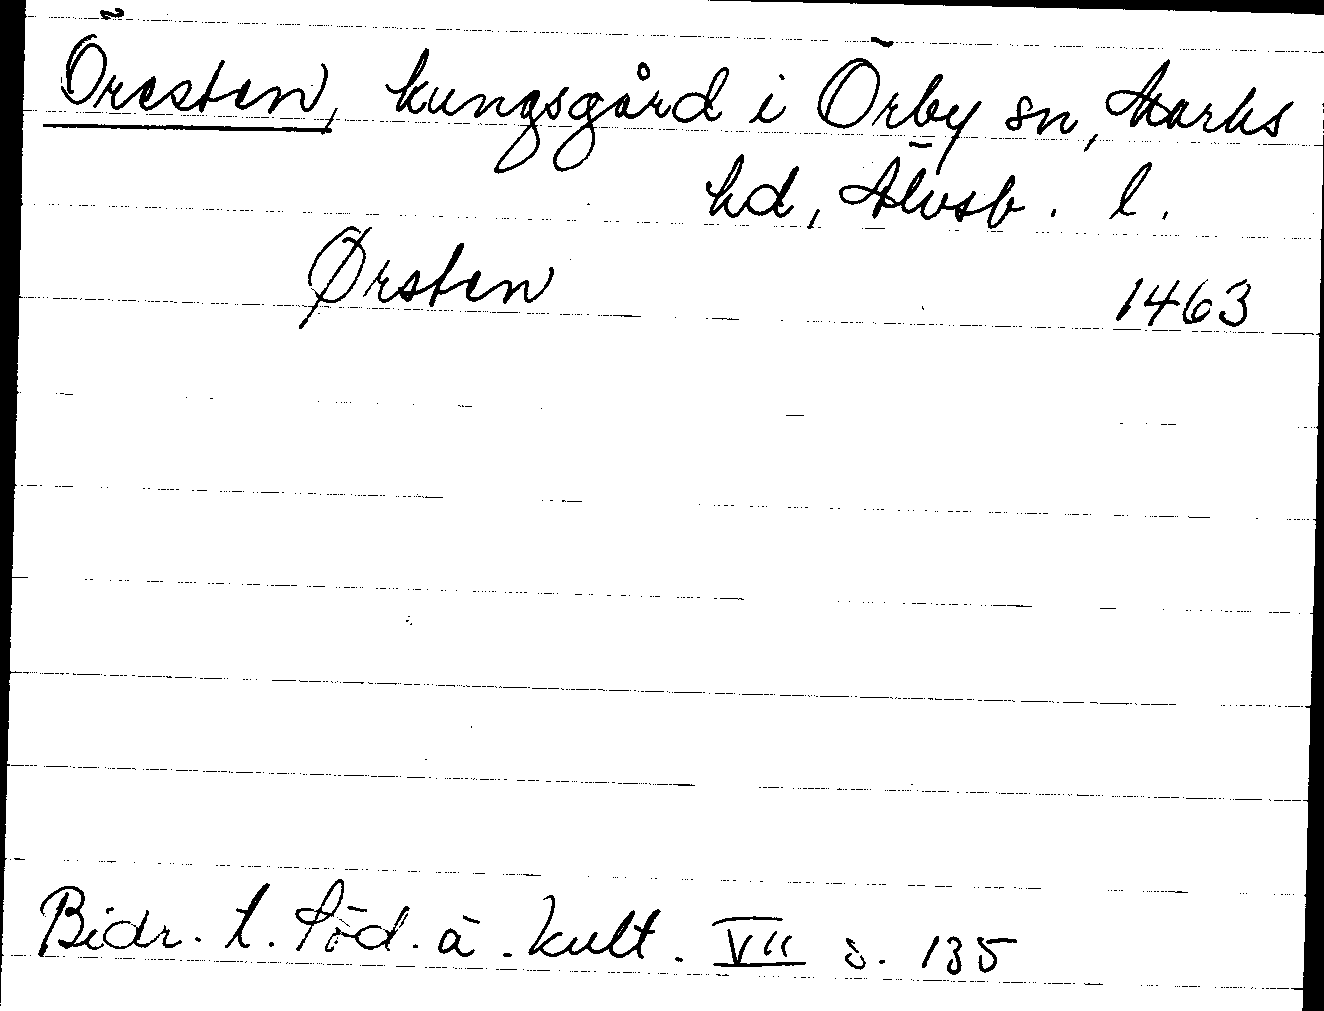 Öresten, kungsgård i Örby sn, Marks
hd, Älvsb. l.
Ørsten 1463
Bidr. t. Söd. ä. kult. VII s. 135